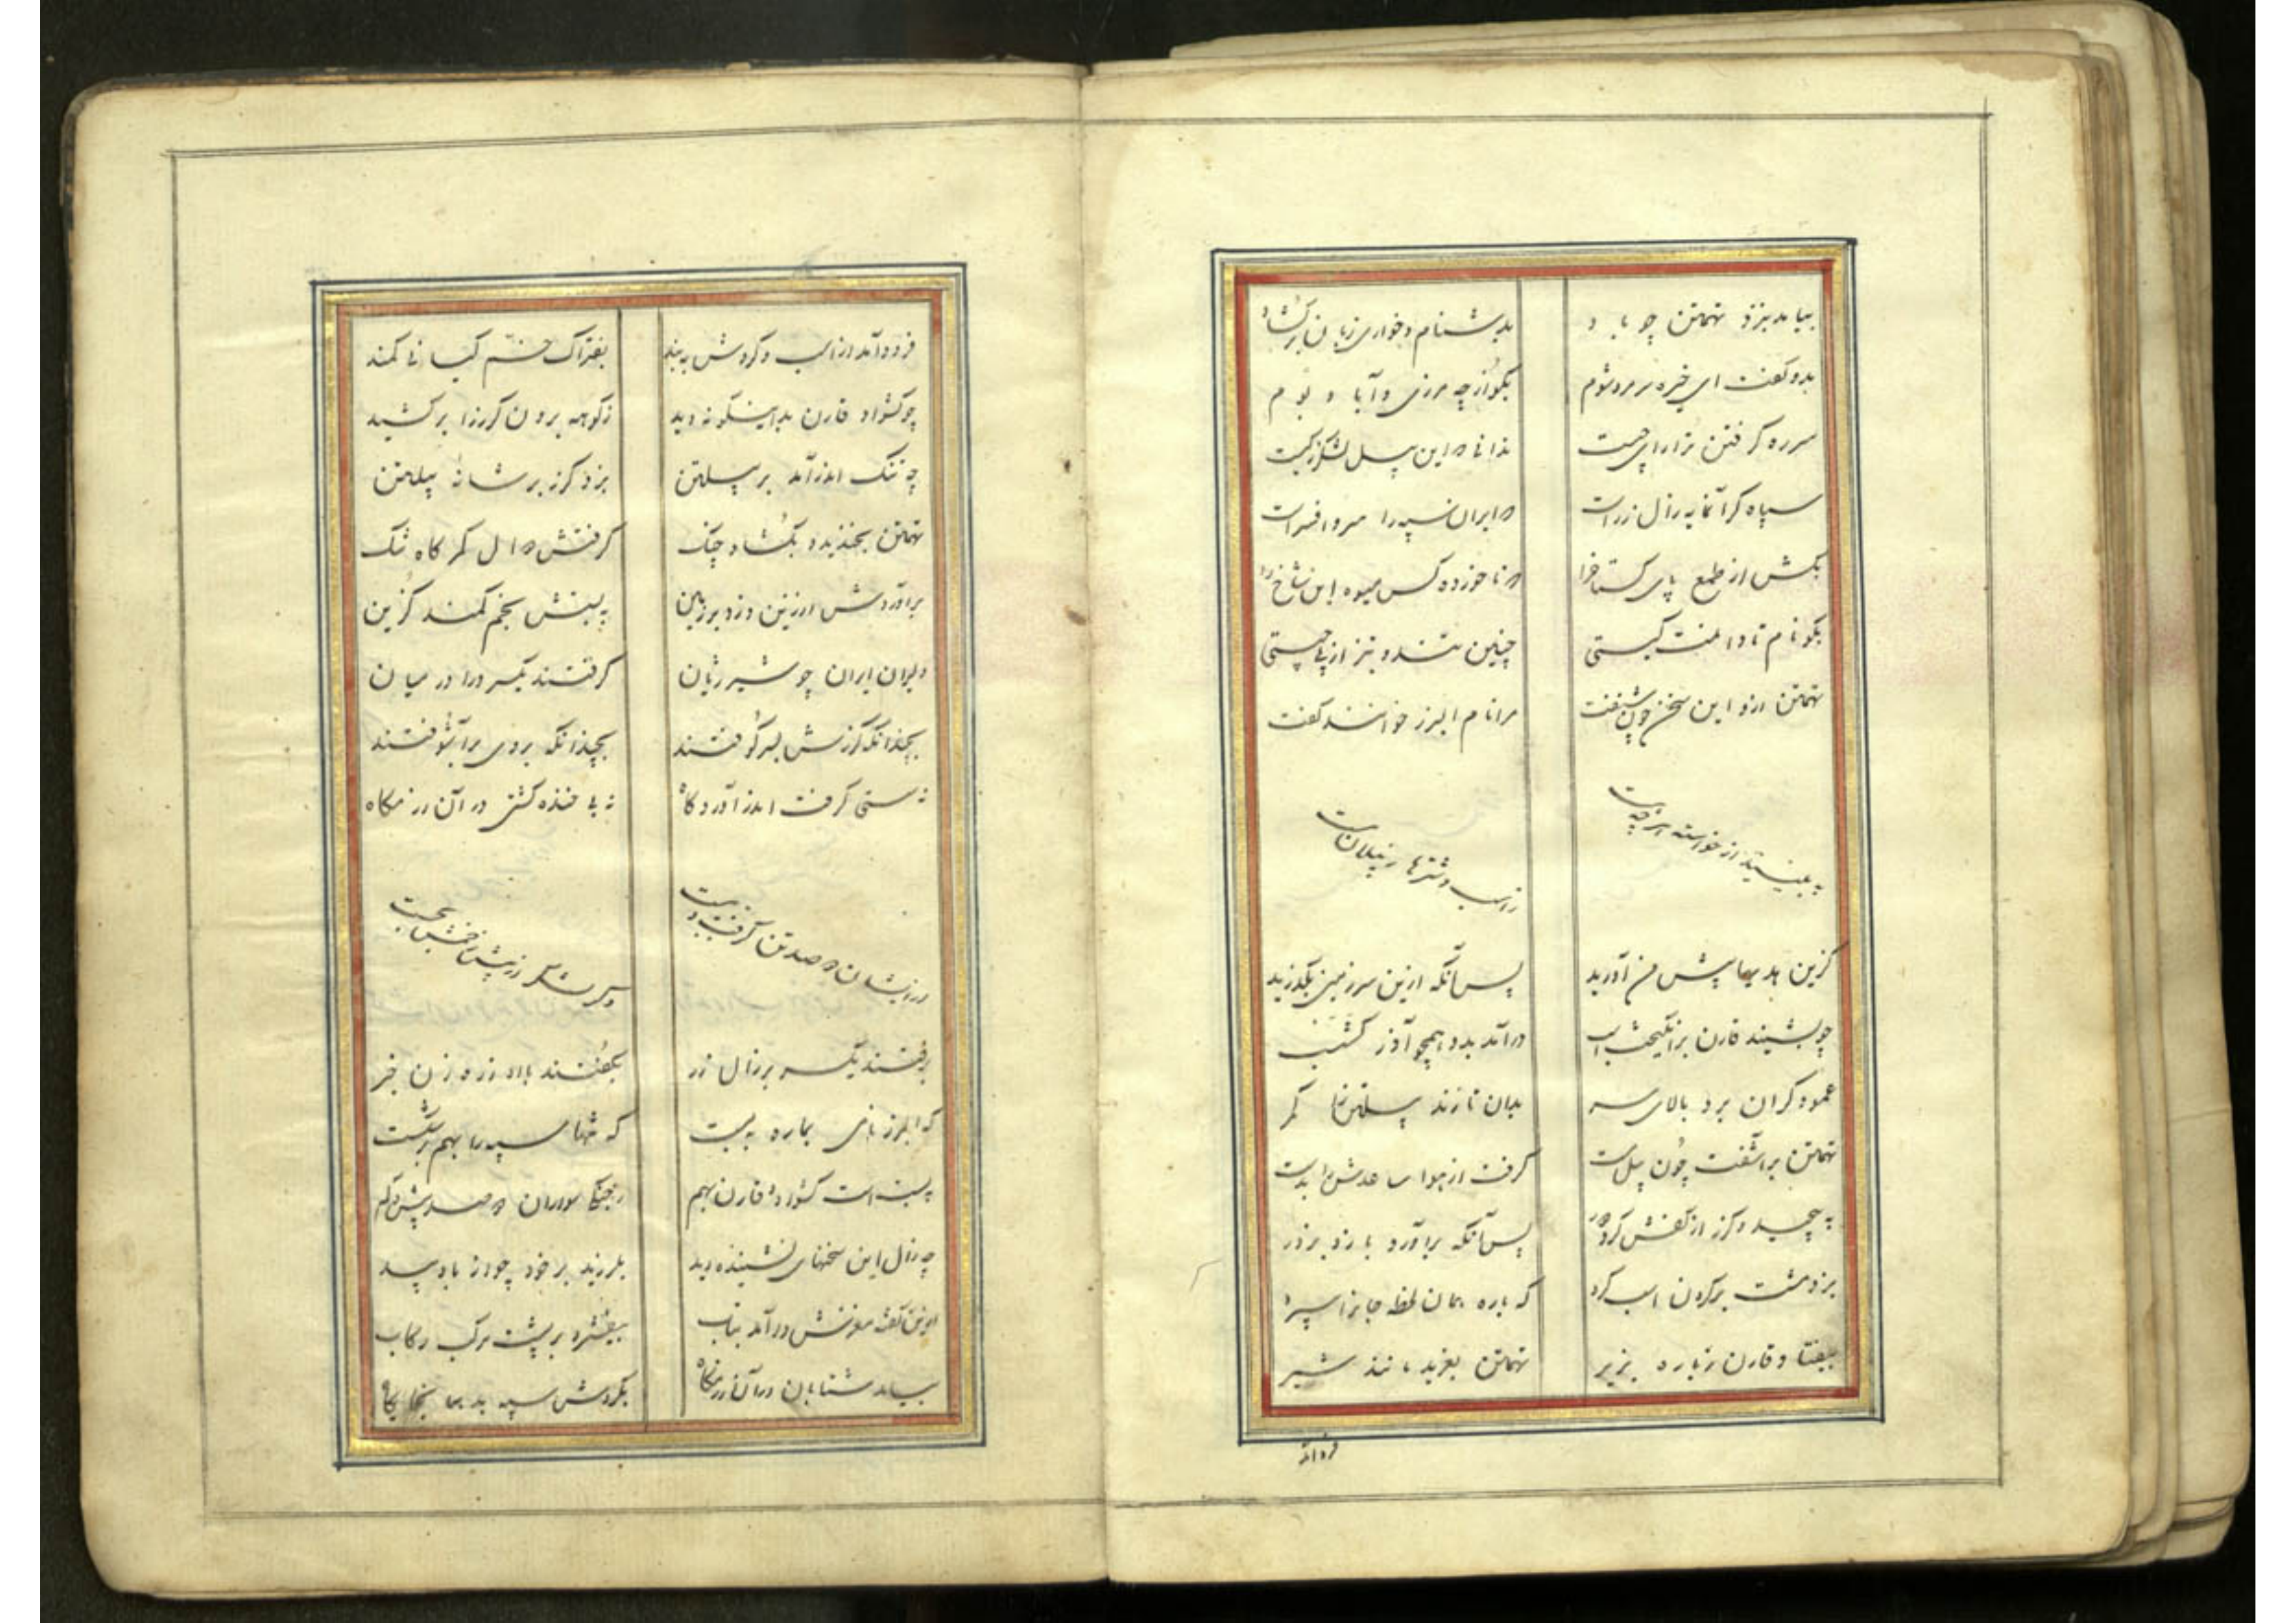 بیامد بنزد تهمتن چو باد بدشنام و خواری زبان برکشاد
بدو کفت ای خیره سر مرد شوم بکو از چه مرزی و آباد و بوم
سر ره کرفتن ترا رای چیست ندانی که این پیل لشکر کیست
سپاه کرانمایه زال زر است که ایران سپه را سر و افسر است
بکش از طمع پای کستاخ را که ناخورده کس میوه این شاخ را
بکو نام تا دانمت کیستی چنین تند و تیز از پی چیستی
تهمتن ازو این سخن چون شنفت مرا نام البرز خوانند کفت
به بینید از خواسته هر چه هست ز اسب و شترها ز پیلان مست
کزین بدیها پیش من آورید پس آنکه ازین سرزمین بکذرید
چو بشنید قارن برانکیخت اسب درآمد بدو همچو آذرکشسب
عمود کران برد بالای سر بدان تا زند پیلتن را مکر
تهمتن برآشفت چون پیل مست کرفت از هوا ساعدش را بدست
به پیچید و کرز از کفش کرد پس آنکه برآورد بازو بزور
بزد مشت بر کردن اسب کرد که باره همان لحظه جانرا سپرد
بیفتاد قارن ز باره بزیر تهمتن بغرید مانند شیر
فرود آمد
فرود آمد از اسب و کردش به بند بفتراک خم کیانی کمند
چو کشواد قارن بدانسکونه دید ز کوهه برون کرز را برکشید
چه تنک اندر آمد بر پیلتن بزد کرز بر شانه پیلتن
تهمتن بخندید و بکشاد چنک کرفتش دوال کمرکاه تنک
برآوردش از زین و زد بر زمین به بستش بخم کمند کزین
دلیران ایران چو شیر ژیان کرفتند یکسر ورا در میان
بچندانکه کرزش بسر کوفتند بچندانکه بروی برآشوفتند
نه سستی کرفت اندر آوردکاه نه با خنده کشتی در آن رزمکاه
در ایشان دو صد تن کرفت و ببست دکر لشکر از پیش رخشش بجست
برفتند یکسر بر زال زر بکفتند با او زه زن خبر
که البرز نامی بما ره ببست که تنها سپه را بهم برشکست
ببست است کشواد و قارن بهم ز جنکی سواران دو صد بیش و کم
چه زال این سخنهای نشنیده دید بلرزید بر خود چو از باد بید
ازین کفته مغزش درآمد بتاب بیفشرد بر پشت مرکب رکاب
بیامد شتابان در آن رزمکاه بکردش سپه بد بجا